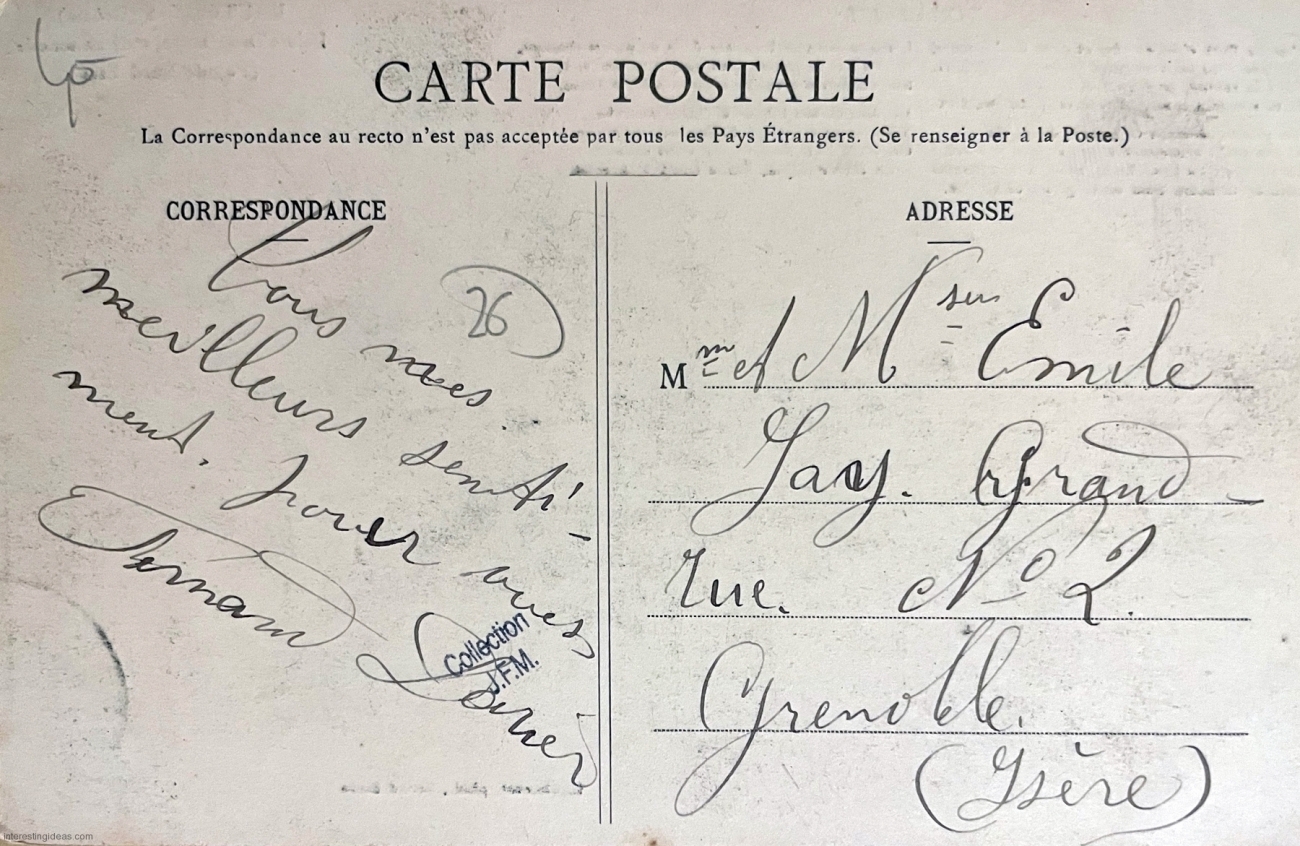 CARTE POSTALE
La Correspondance au recto n'est pas acceptée par tous les Pays Étrangers. (Se renseigner à la Poste.)
CORRESPONDANCE
Tous mes
meilleurs senti-
ment.
Fernand
26
Collection
J.F.M.
ADRESSE
Mme et Msieu Emile
Jay. Grand
rue. No 2.
Grenoble.
(Isère)
interestingideas.com